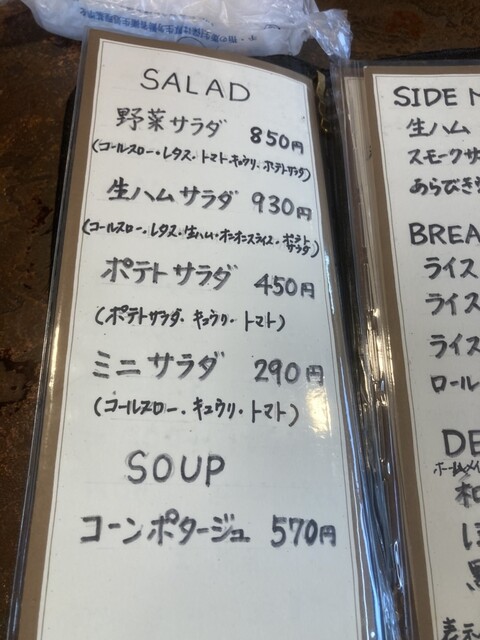 SALAD
野菜サラダ 850円
(コールスロー・レタス・トマト・キュウリ・ポテトサラダ)
生ハムサラダ 930円
(コールスロー・レタス・生ハム・オニオンスライス・ポテトサラダ)
ポテトサラダ 450円
(ポテトサラダ・キュウリ・トマト)
ミニサラダ 290円
(コールスロー・キュウリ・トマト)
SOUP
コーンポタージュ 570円
SIDE M
生ハム
スモークサ
あらびき
BREA
ライス
ライス
ライス
ロール
DE
ホームメイ
和
ほ
黒
表示